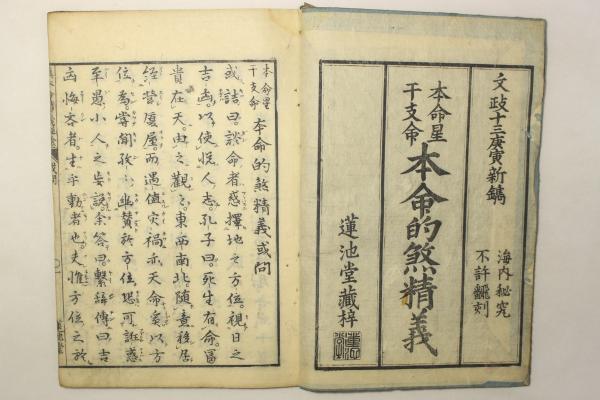 文政十三庚寅新鐫
海内秘究
不許翻刻
本命星
干支命
本命的煞精義
蓮池堂藏梓
本命星
干支命
本命的煞精義或問
或詰曰。談命者惑擇地之方位。視日之
吉凶。以使悦人志。孔子曰。死生有命。富
貴在天。由之觀之。東西南北。隨意移居
經營厦屋。而遇値災禍亦天命矣。以方
位為。嘗聞孜幽賛於方位。恐可誑惑
至愚小人之妄説。余答曰。繫辭傳曰。吉
凶悔吝者。生乎動者也。夫惟方位之於